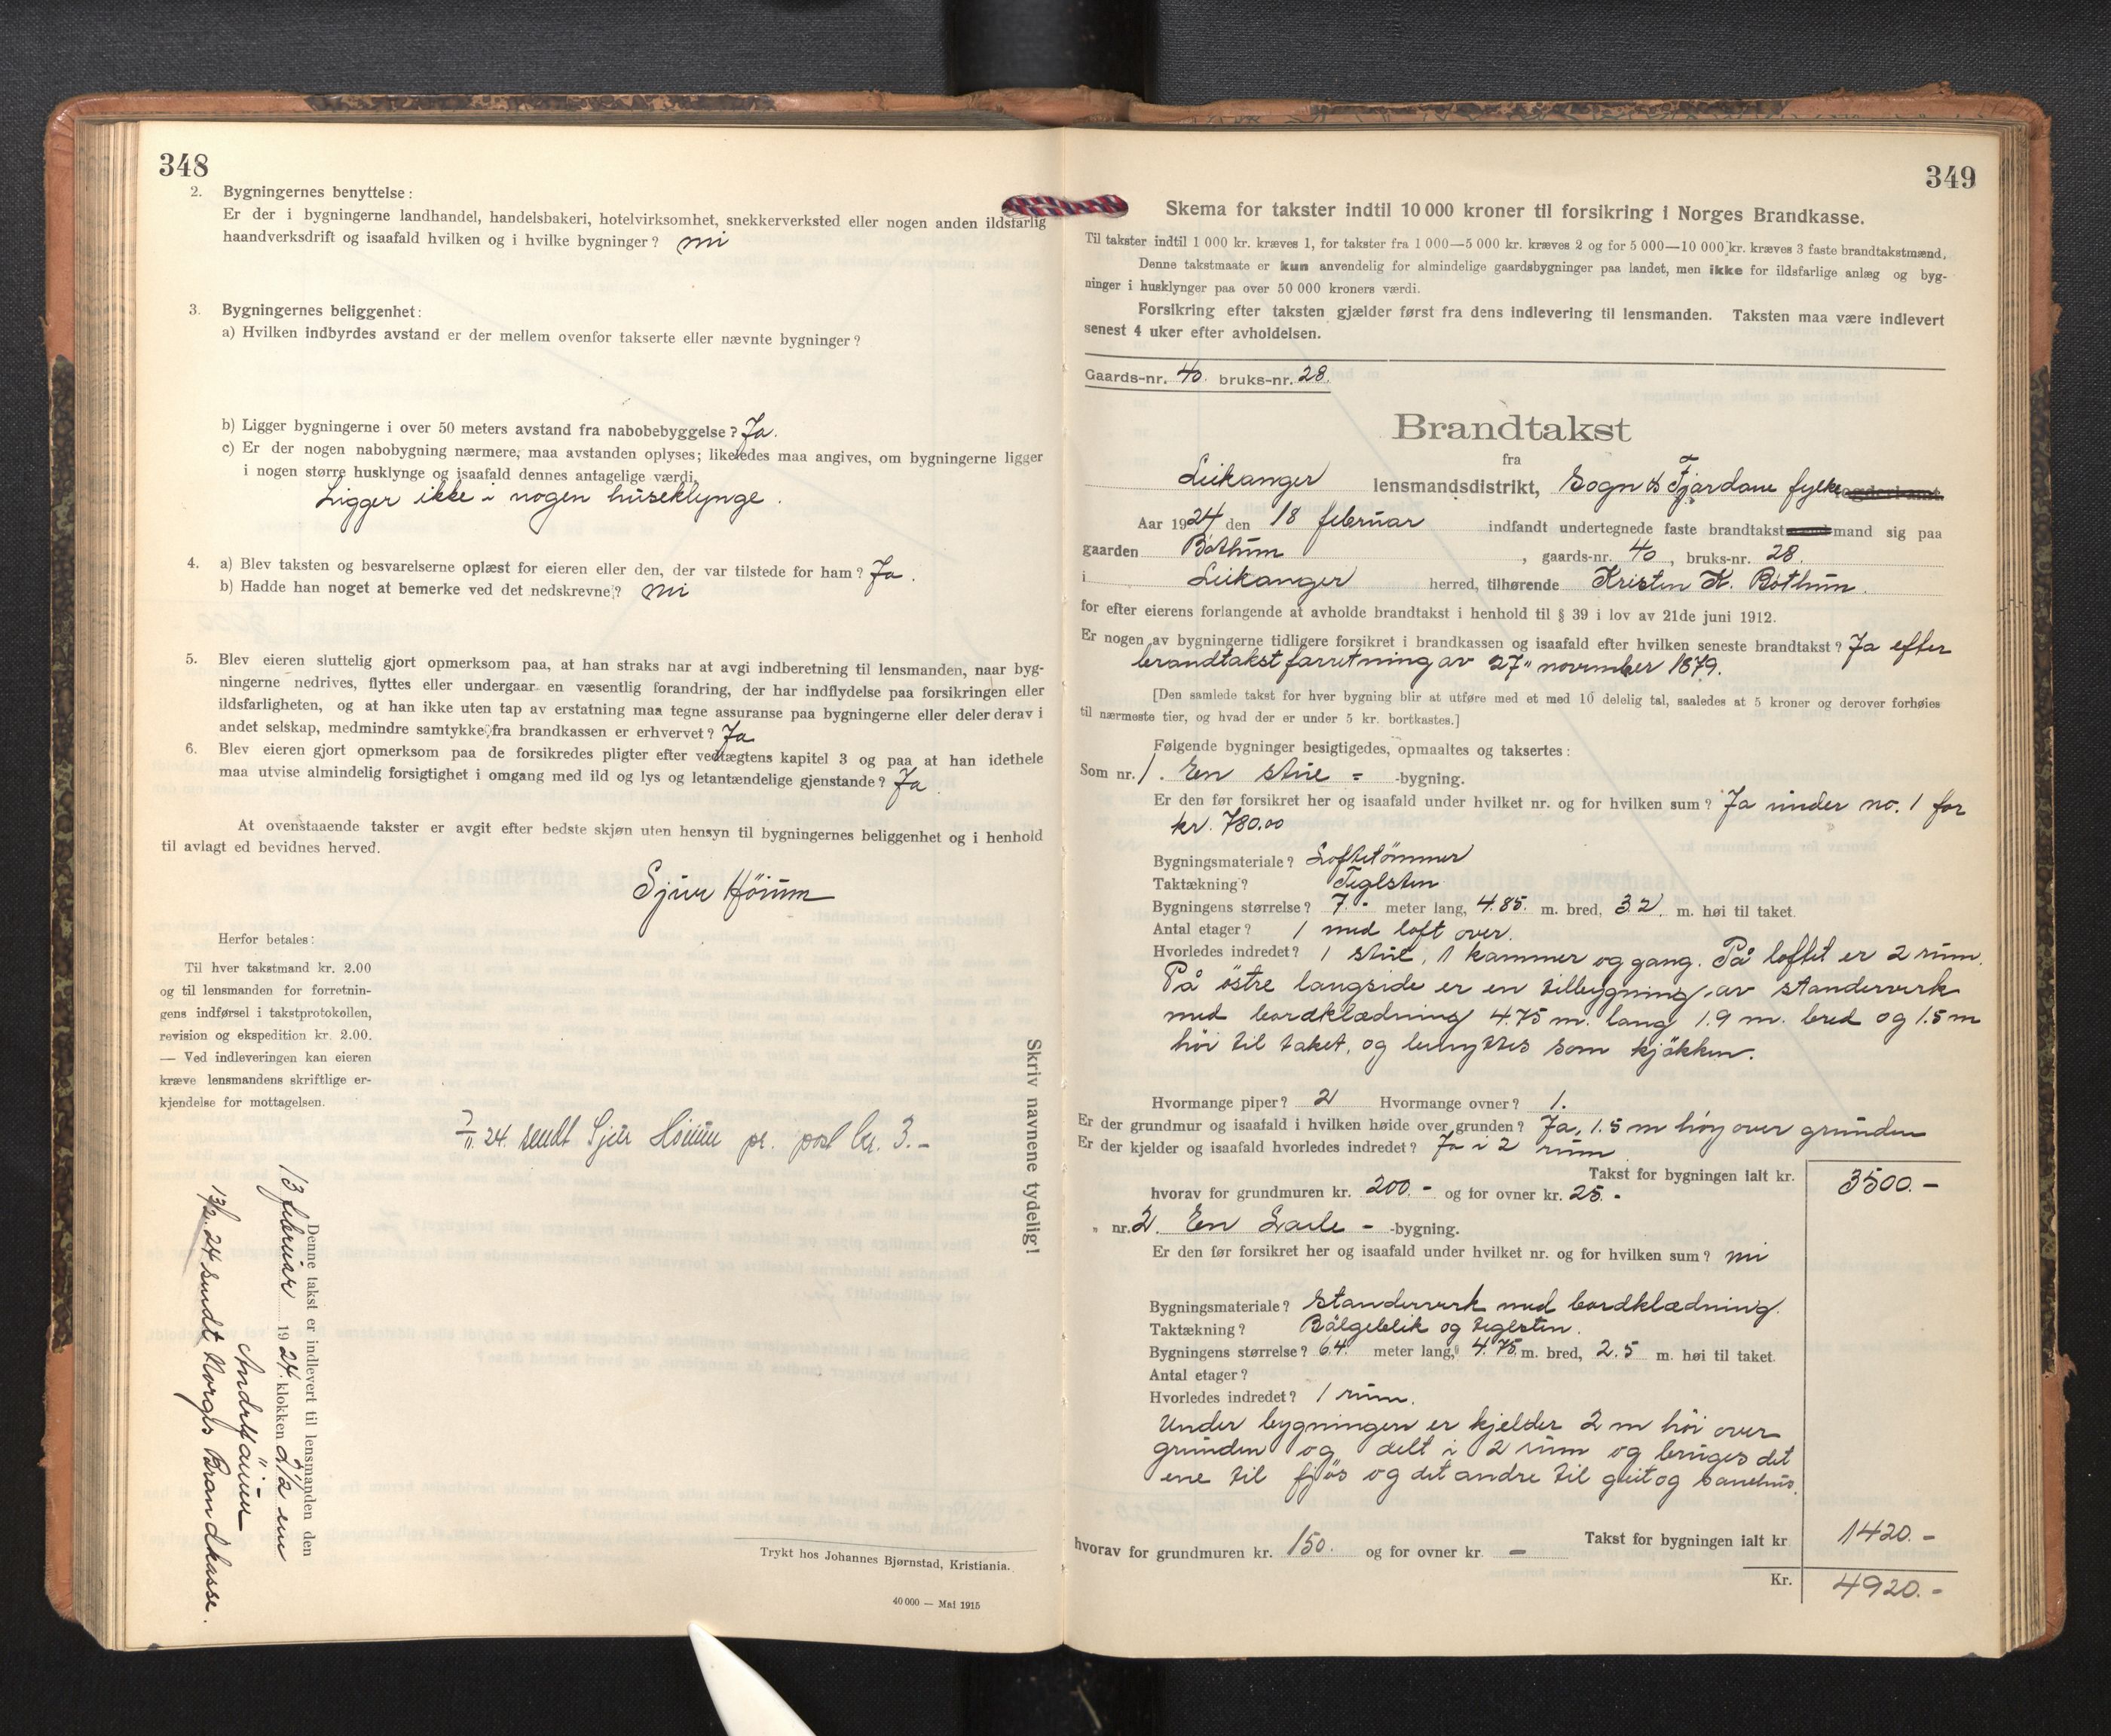 348
2. Bygningernes benyttelse:
Er der i bygningerne landhandel, handelsbakeri, hotelvirksomhet, snekkerverksted eller nogen anden ildsfarlig
haandverksdrift og isaafald hvilken og i hvilke bygninger? nei
3. Bygningernes beliggenhet:
a) Hvilken indbyrdes avstand er der mellem ovenfor takserte eller nævnte bygninger?
b) Ligger bygningerne i over 50 meters avstand fra nabobebyggelse? Ja.
c) Er der nogen nabobygning nærmere, maa avstanden oplyses; likeledes maa angives, om bygningerne ligger
i nogen større husklynge og isaafald dennes antagelige værdi.
Ligger ikke i nogen huseklynge.
4. a) Blev taksten og besvarelserne oplæst for eieren eller den, der var tilstede for ham? Ja.
b) Hadde han noget at bemerke ved det nedskrevne? nei
5. Blev eieren sluttelig gjort opmerksom paa, at han straks har at avgi indberetning til lensmanden, naar byg-
ningerne nedrives, flyttes eller undergaar en væsentlig forandring, der har indflydelse paa forsikringen eller
ildsfarligheten, og at han ikke uten tap av erstatning maa tegne assuranse paa bygningerne eller deler derav i
andet selskap, medmindre samtykke fra brandkassen er erhvervet? Ja
6. Blev eieren gjort opmerksom paa de forsikredes pligter efter vedtægtens kapitel 3 og paa at han idethele
maa utvise almindelig forsigtighet i omgang med ild og lys og letantændelige gjenstande? Ja
At ovenstaaende takster er avgit efter bedste skjøn uten hensyn til bygningernes beliggenhet og i henhold
til avlagt ed bevidnes herved.
Sjur Höium
Herfor betales:
Til hver takstmand kr. 2.00
og til lensmanden for forretnin-
gens indførsel i takstprotokollen,
revision og ekspedition kr. 2.00.
— Ved indleveringen kan eieren
kræve lensmandens skriftlige er-
kjendelse for mottagelsen.
24. sendt Sjur Höium pr. post kr. 3.-
Skriv navnene tydelig!
Denne takst er indlevert til lensmanden den
13 februar 1924 klokken em
13/2 24 sendt Norges Brandkasse.
Trykt hos Johannes Bjørnstad, Kristiania.
40 000 — Mai 1915
349
Skema for takster indtil 10 000 kroner til forsikring i Norges Brandkasse.
Til takster indtil 1 000 kr. kræves 1, for takster fra 1 000—5 000 kr. kræves 2 og for 5 000—10 000 kr. kræves 3 faste brandtakstmænd.
Denne takstmaate er kun anvendelig for almindelige gaardsbygninger paa landet, men ikke for ildsfarlige anlæg og byg-
ninger i husklynger paa over 50 000 kroners værdi.
Forsikring efter taksten gjælder først fra dens indlevering til lensmanden. Taksten maa være indlevert
senest 4 uker efter avholdelsen.
Gaards-nr. 40. bruks-nr. 28.
Brandtakst
fra
Leikanger lensmandsdistrikt, Sogn & Fjordane fylke
Aar 1924 den 18 februar indfandt undertegnede faste brandtakstmand sig paa
gaarden Bothum, gaards-nr. 40, bruks-nr. 28.
i Leikanger herred, tilhørende Kristen K. Bothum.
for efter eierens forlangende at avholde brandtakst i henhold til § 39 i lov av 21de juni 1912.
Er nogen av bygningerne tidligere forsikret i brandkassen og isaafald efter hvilken seneste brandtakst? Ja efter
brandtakstforretning av 27" november 1879.
[Den samlede takst for hver bygning blir at utføre med et med 10 delelig tal, saaledes at 5 kroner og derover forhøies
til nærmeste tier, og hvad der er under 5 kr. bortkastes.]
Følgende bygninger besigtigedes, opmaaltes og taksertes:
Som nr. 1. En stue - -bygning.
Er den før forsikret her og isaafald under hvilket nr. og for hvilken sum? Ja under no. 1 for
kr. 780.00
Bygningsmateriale? Loftetömmer
Taktækning? Teglsten
Bygningens størrelse? 7.- meter lang, 4.85. m. bred, 3.2. m. høi til taket.
Antal etager? 1 med loft over.
Hvorledes indredet? 1 stue, 1 kammer og gang. På loftet er 2 rum.
På östre langside er en tilbygning av standerverk
med bordklædning 4.75 m. lang 1.9 m. bred og 1.5 m
höi til taket, og benyttes som kjökken.
Hvormange piper? 2 Hvormange ovner? 1.
Er der grundmur og isaafald i hvilken høide over grunden? Ja, 1.5 m höy over grunden
Er der kjelder og isaafald hvorledes indredet? Ja i 2 rum
Takst for bygningen ialt kr. 3500.-
hvorav for grundmuren kr. 200.- og for ovner kr. 25.-
" nr. 2. En Lade - -bygning.
Er den før forsikret her og isaafald under hvilket nr. og for hvilken sum? nei
Bygningsmateriale? Standerverk med bordklædning.
Taktækning? Bölgeblik og teglsten.
Bygningens størrelse? 6.4. meter lang, 4.75 m. bred, 2.5 m. høi til taket.
Antal etager?
Hvorledes indredet? 1 rum.
Under bygningen er kjelder 2 m höi over
grunden og delt i 2 rum og bruges det
ene til fjös og det andre til geit og sauehus.
Takst for bygningen ialt kr 1420.-
hvorav for grundmuren kr. 150. og for ovner kr. -
Kr. 4920.-